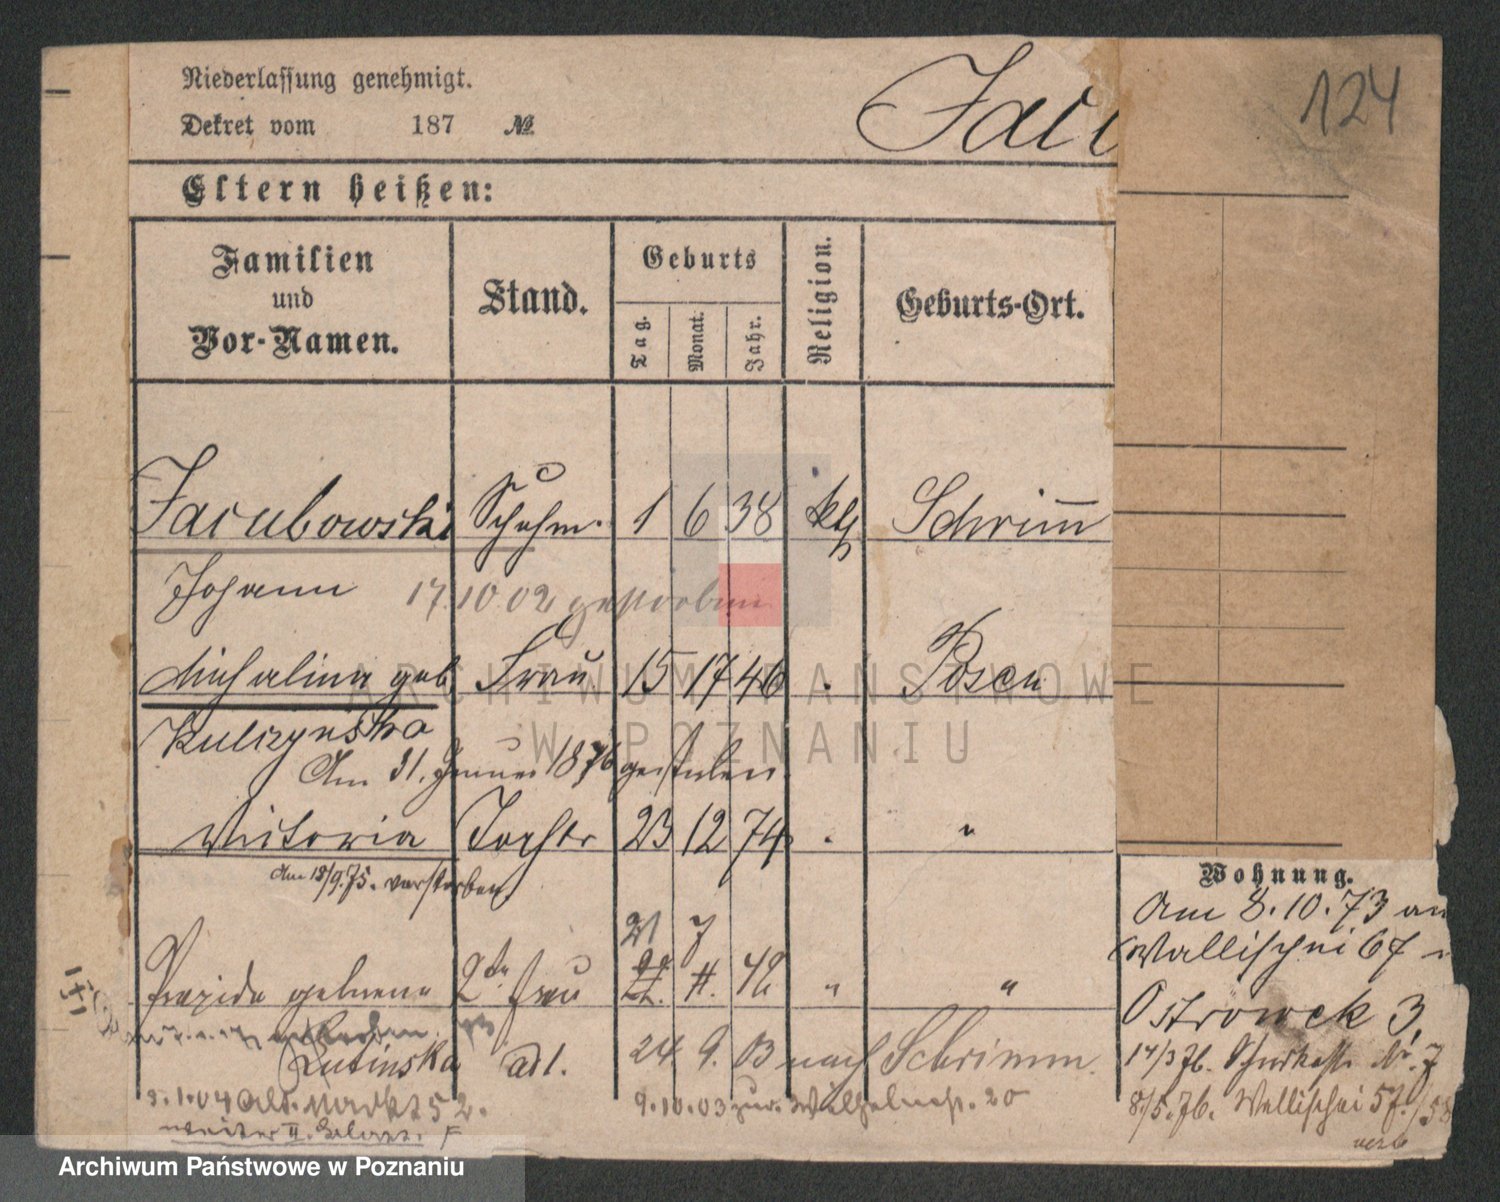 Niederlassung genehmigt.
Dekret vom 187 №
Jacu
124
Eltern heißen:
Familien und Vor-Namen.
Stand.
Geburts
Tag.
Monat.
Jahr.
Religion.
Geburts-Ort.
Jacubowski Schuhm. 1 6 38 kth Schrimm
Johann 17.10.02 gestorben
Michalina geb. Frau 15 17 46 . Posen
Kulczynska
Am 31. Januar 1876 gestorben.
Victoria Tochter 23 12 74 . "
Am 18/9.75. verstorben
21 7
Prazida geborene 2te Frau 42 " "
Lutinska adl. 24. 9. 03 nach Schrimm.
5.1.04 Alt. Markt 52.
9.10.03 zur. Wilhelmstr. 20
weiter II.
Wohnung.
Am 8.10.73 an
Wallischei 67
Ostrowek 3,
14/3 76. No. 7
8/5.76. Wallischei 57/58
ARCHIWUM PAŃSTWOWE
W POZNANIU
Archiwum Państwowe w Poznaniu